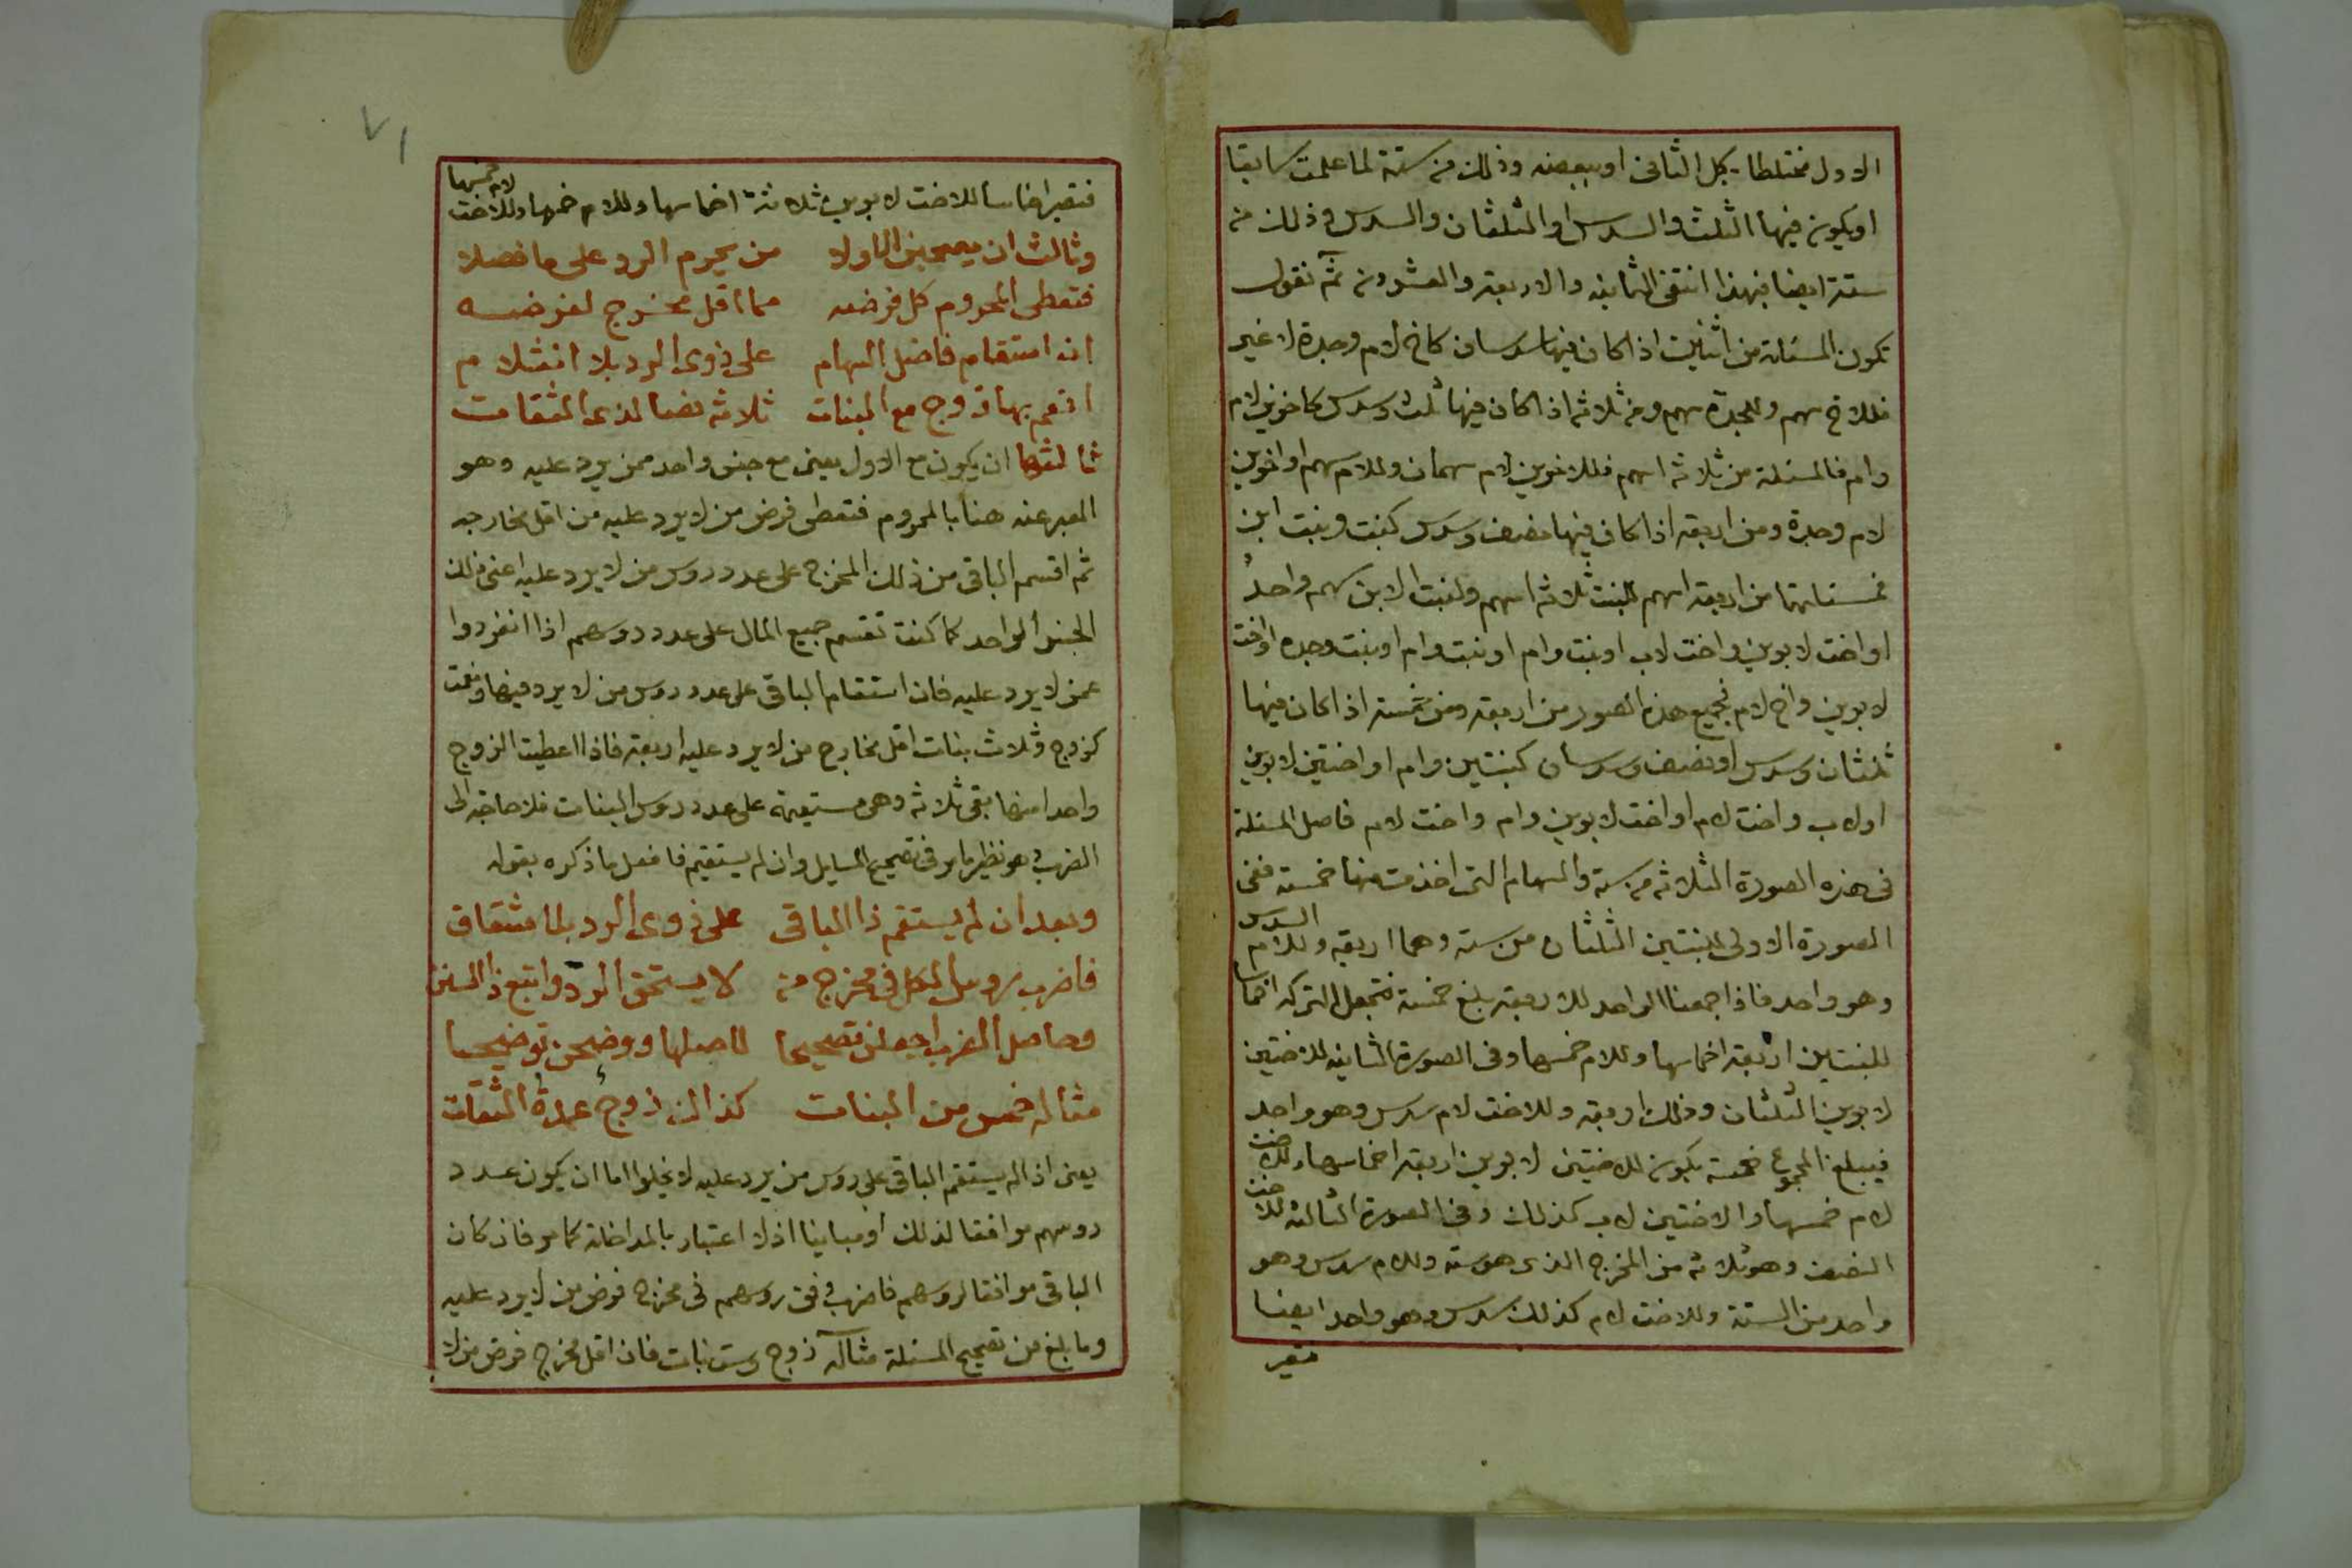 الاول مختلطا بكل الثانى او ببعضه وذلك من ستة لما علمت سابقا
او يكون فيها الثلث والسدس او الثلثان والسدس وذلك من
ستة ايضا فبهذا انتفى الثمانيه والاربعة والعشرون ثم نقول
تكون المسئلة من اثنين اذا كان فيها سدسان كاخ لام وجدة لا غير
فللاخ سهم وللجدة سهم ومن ثلاثه اذا كان فيها ثلث وسدس كاخوين لام
وام فالمسئلة من ثلاثه اسهم فللاخوين لام سهمان وللام سهم او اخوين
لام وجدة ومن اربعة اذا كان فيها نصف وسدس كبنت وبنت ابن
فمسئلتهما من اربعة اسهم للبنت ثلاثه اسهم ولبنت الابن سهم واحد
او اخت لابوين واخت لاب او بنت وام او بنت وام او بنت وجده او اخت
لابوين واخ لام فجميع هذه الصور من اربعة ومن خمسة اذا كان فيها
ثلثان وسدس او نصف وسدسان كبنتين وام او اختين لابوين
او لاب واخت لام او اخت لابوين وام واخت لام فاصل المسئلة
فى هذه الصورة الثلاثه من ستة والسهام التى اخذت منها خمسة ففى
الصورة الاولى للبنتين الثلثان من سته وهما اربعه وللام السدس
وهو واحد فاذا جمعنا الواحد للاربعة بلغ خمسة فتجعل التركه اخماسا
للبنتين اربعة اخماسها وللام خمسها وفى الصورة الثانيه للاختين
لابوين الثلثان وذلك اربعة وللاخت لام سدس وهو واحد
فيبلغ المجموع خمسة يكون للاختين لابوين اربعة اخماسها وللاخت
لام خمسها والاختين لاب كذلك وفى الصورة الثالثه للاخت
النصف وهو ثلاثة من المخرج الذى هو سته وللام سدس وهو
واحد من الستة وللاخت لام كذلك سدس وهو واحد ايضا
فتصير
٧١
فتصير اخماسا للاخت لابوين ثلاثة اخماسها وللام خمسها وللاخت لام خمسها
وثالث ان يصحبن الاولا من يحرم الرد على ما فصلا
فتعطى المحروم كل فرضه مما اقل مخرج لفرضه
ان استقام فاضل السهام على ذوى الرد بلا انثلام
انعم بها زوج مع البنات ثلاثه نصا لذى الثقات
ثالثها ان يكون مع الاول يعنى مع جنس واحد ممن يرد عليه وهو
المعبر عنه هنا بالمحروم فتعطى فرض من لا يرد عليه من اقل مخارجه
ثم اقسم الباقى من ذلك المخرج على عدد روس من لا يرد عليه اعنى ذلك
الجنس الواحد كما كنت تقسم جميع المال على عدد روسهم اذا انفردوا
عمن لا يرد عليه فان استقام الباقى على عدد روس من لا يرد فبها ونعمت
كزوج وثلاث بنات اقل مخارج من لا يرد عليه اربعة فاذا اعطيت الزوج
واحدا منها بقى ثلاثه وهى مستقيمة على عدد روس البنات فلا حاجة الى
الضرب وهو نظير ما مر فى تصحيح المسايل وان لم يستقيم فافعل ما ذكره بقوله
وبعد ان لم يستقم ذا الباقى على ذوى الرد بلا شقاق
فاضرب روس الكل فى مخرج من لا يستحق الرد واتبع ذا السنن
وحاصل الضرب اجعلن تصحيحا لاصلها ووضحن توضيحا
مثاله خمس من البنات كذاك زوج عمدة الثقات
يعنى اذا لم يستقم الباقى على روس من يرد عليه لا يخلوا اما ان يكون عدد
روسهم موافقا لذلك او مباينا اذ لا اعتبار بالمداخلة كما مر فان كان
الباقى موافقا لروسهم فاضرب وفق روسهم فى مخرج فرض من لا يرد عليه
وما بلغ من تصحيح المسئلة مثاله زوج وست بنات فان اقل مخرج فرض من لا